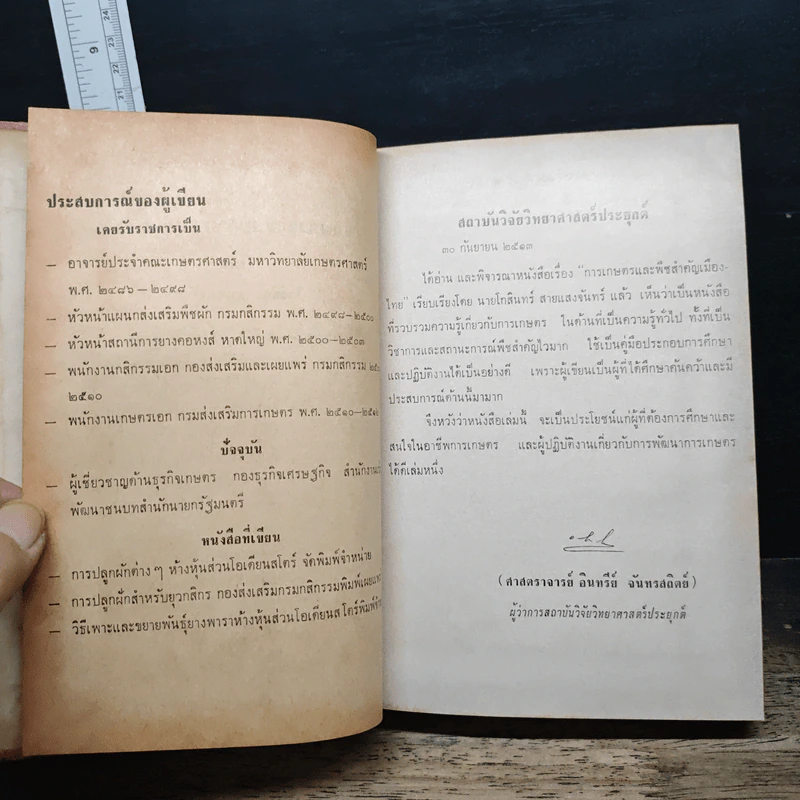 ประสบการณ์ของผู้เขียน
เคยรับราชการเป็น
— อาจารย์ประจำคณะเกษตรศาสตร์ มหาวิทยาลัยเกษตรศาสตร์
พ.ศ. ๒๔๘๖—๒๔๙๘
— หัวหน้าแผนกส่งเสริมพืชผัก กรมกสิกรรม พ.ศ. ๒๔๙๘—๒๕๐๐
— หัวหน้าสถานีการยางคอหงส์ หาดใหญ่ พ.ศ. ๒๕๐๐—๒๕๐๓
— พนักงานกสิกรรมเอก กองส่งเสริมและเผยแพร่ กรมกสิกรรม
๒๕๑๐
— พนักงานเกษตรเอก กรมส่งเสริมการเกษตร พ.ศ. ๒๕๑๐—
ปัจจุบัน
— ผู้เชี่ยวชาญด้านธุรกิจเกษตร กองธุรกิจเศรษฐกิจ
พัฒนาชนบทสำนักนายกรัฐมนตรี
หนังสือที่เขียน
— การปลูกผักต่างๆ ห้างหุ้นส่วนโอเดียนสโตร์ จัดพิมพ์จำหน่าย
— การปลูกผักสำหรับยุวกสิกร กองส่งเสริมกรมกสิกรรมพิมพ์เผยแพร่
— วิธีเพาะและขยายพันธุ์ยางพาราห้างหุ้นส่วนโอเดียนสโตร์
สถาบันวิจัยวิทยาศาสตร์ประยุกต์
๓๐ กันยายน ๒๕๑๓
ได้อ่าน และพิจารณาหนังสือเรื่อง "การเกษตรและพืชสำคัญเมือง-
ไทย" เรียบเรียงโดย นายโกสินทร์ สายแสงจันทร์ แล้ว เห็นว่าเป็นหนังสือ
ที่รวบรวมความรู้เกี่ยวกับการเกษตร ในด้านที่เป็นความรู้ทั่วไป ทั้งที่เป็น
วิชาการและสถานะการณ์พืชสำคัญไวมาก ใช้เป็นคู่มือประกอบการศึกษา
และปฏิบัติงานได้เป็นอย่างดี เพราะผู้เขียนเป็นผู้ที่ได้ศึกษาค้นคว้าและมี
ประสบการณ์ด้านนี้มามาก
จึงหวังว่าหนังสือเล่มนี้ จะเป็นประโยชน์แก่ผู้ที่ต้องการศึกษาและ
สนใจในอาชีพการเกษตร และผู้ปฏิบัติงานเกี่ยวกับการพัฒนาการเกษตร
ได้ดีเล่มหนึ่ง
(ศาสตราจารย์ อินทรีย์ จันทรสถิตย์)
ผู้ว่าการสถาบันวิจัยวิทยาศาสตร์ประยุกต์
9
24
23
22
21